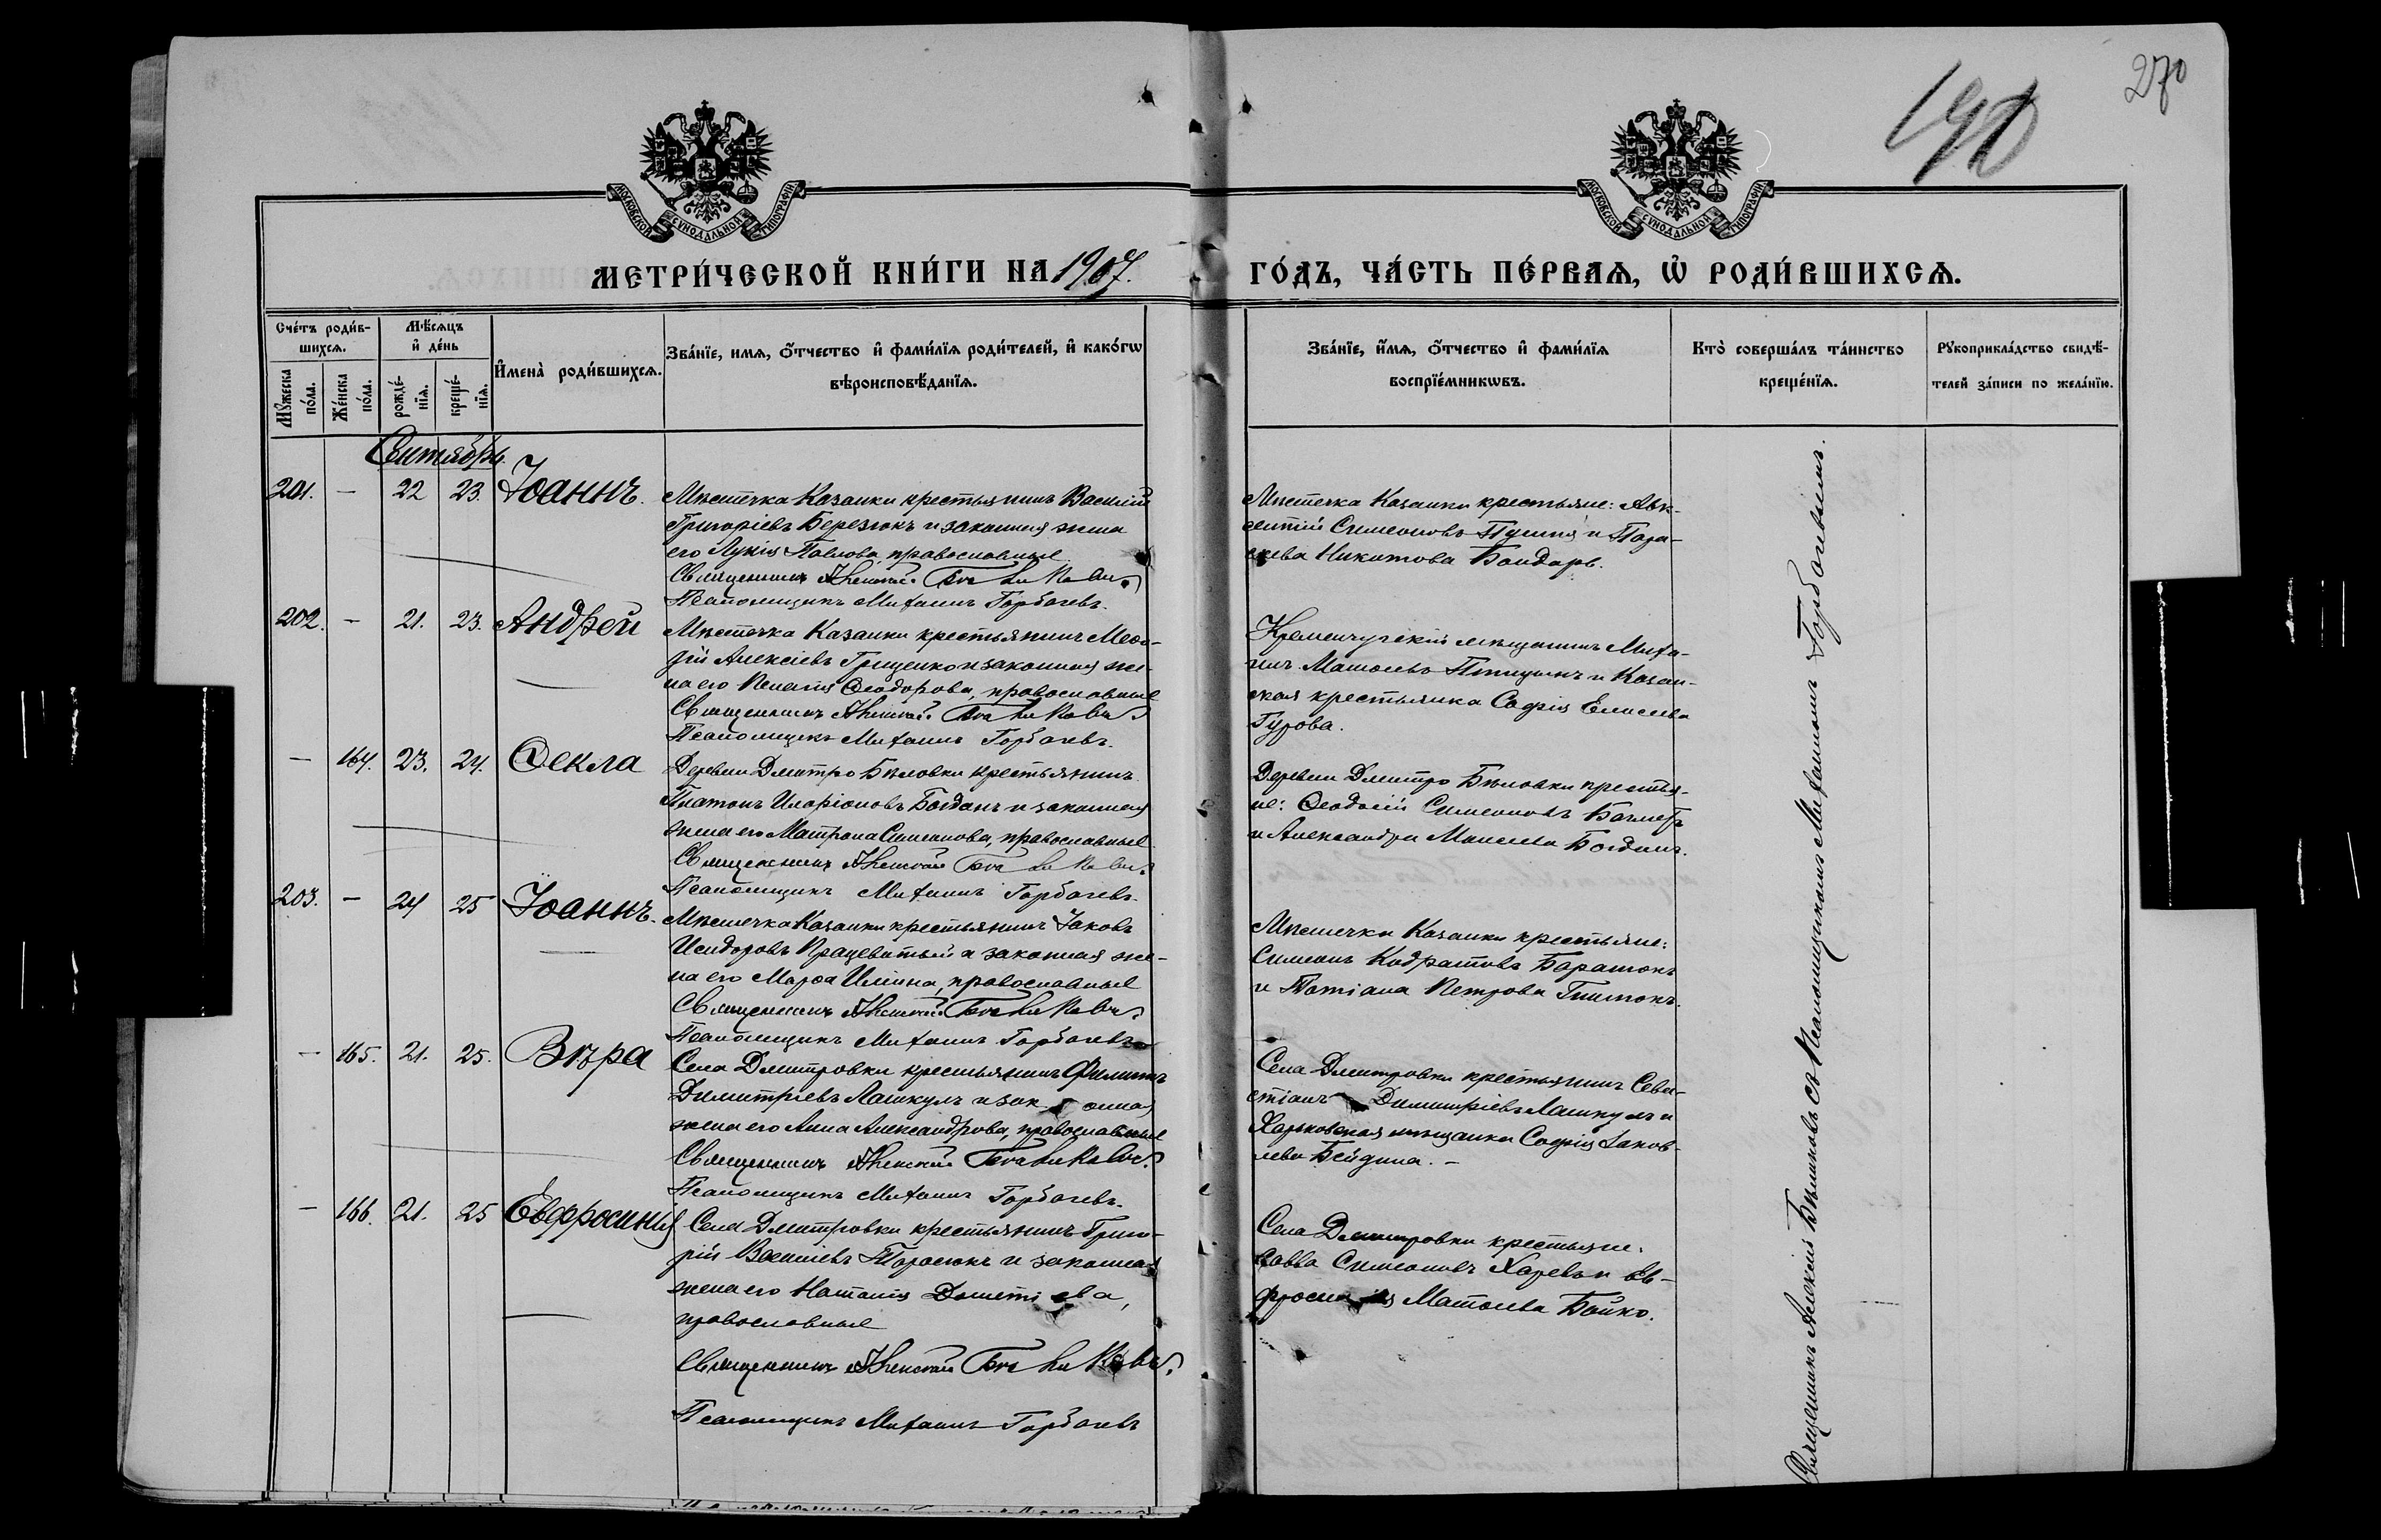 270
190
МОСКОВСКОЙ СУНОДАЛЬНОЙ ТИПОГРАФІИ
МОСКОВСКОЙ СУНОДАЛЬНОЙ ТИПОГРАФІИ
МЕТРИ́ЧЕСКОЙ КНИ́ГИ НА 1907.
ГО́ДЪ, ЧА́СТЬ ПЕ́РВАѦ, Ѽ РОДИ́ВШИХСѦ.
Сче́тъ роди́в-
шихсѧ.
Мѣ́сѧцъ
и҆ де́нь
Мꙋ́жеска
по́ла.
Же́нска
по́ла.
рожде́-
нїѧ.
креще́-
нїѧ.
И҆мена̀ роди́вшихсѧ.
Зва́нїе, имѧ, ѻ҆́тчество и҆ фами́лїѧ роди́телей, и҆ како́гѡ
вѣроисповѣ́данїѧ.
Зва́нїе, и҆́мѧ, ѻ҆́тчество и҆ фами́лїѧ
воспрїе́мникѡвъ.
Кто̀ соверша́лъ та́инство
креще́нїѧ.
Рꙋкоприкла́дство свидѣ́-
телей за́писи по жела́нїю.
Сентябрь.
201. — 22 23. Іоаннъ.
Мѣстечка Казанки крестьянинъ Василій
Григоріевъ Березюкъ и законная жена
его Лукія Павлова, православные
Священникъ Алексій
Псаломщикъ Михаилъ Горбачевъ.
Мѣстечка Казанки крестьяне: Авк-
сентій Симеоновъ и Пара-
скева Никитова Бондарь.
202. — 21. 23. Андрей
Мѣстечка Казанки крестьянинъ
Алексіевъ Гриценко и законная же-
на его Пелагія Ѳеодорова, православные
Священникъ Алексій
Псаломщикъ Михаилъ Горбачевъ.
Кременчугскій мѣщанинъ Миха-
илъ и Казан-
ская крестьянка Софія Елисеева
Гурова.
— 164. 23. 24. Ѳекла
Деревни Дмитро Бѣловки крестьянинъ
Платонъ Иларіоновъ Богданъ и законная
жена его Матрона Симеонова, православные
Священникъ Алексій
Псаломщикъ Михаилъ Горбачевъ.
Деревни Дмитро Бѣловки крестья-
не: Ѳеодосій Симеоновъ
и Александра Моисеева Богданъ.
203. — 24 25 Іоаннъ.
Мѣстечка Казанки крестьянинъ Іаковъ
Исидоровъ Працевитый и законная же-
на его Марѳа Ильина, православные
Священникъ Алексій
Псаломщикъ Михаилъ Горбачевъ
Мѣстечка Казанки крестьяне:
Симеонъ Кодратовъ
и Татіана Петрова
— 165. 21. 25. Вѣра
Села Дмитровки крестьянинъ Филиппъ
Димитріевъ Лашкулъ и законная
жена его Анна Александрова, православные
Священникъ Алексій
Псаломщикъ Михаилъ Горбачевъ.
Села Дмитровки крестьянинъ Сева-
стіанъ Димитріевъ Лашкулъ и
Харьковская мѣщанка Софія Іаков-
лева Бейдина. —
— 166. 21. 25 Евфросинія
Села Дмитровки крестьянинъ Григо-
рій Василіевъ Тарасюкъ и законная
жена его Наталія
православные
Священникъ Алексій
Псаломщикъ Михаилъ Горбачевъ
Села Дмитровки крестьяне:
Савва Симеоновъ и Ев-
фросинія Матвіева Бойко.
Священникъ Алексій Бѣликовъ съ Псаломщикомъ Михаиломъ Горбачевымъ.